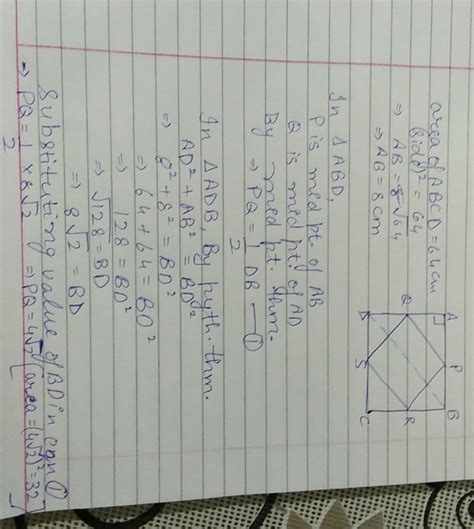 area of ABCD = 64cm
(side)² = 64
⇒ AB = 8√64
⇒ AB = 8cm
A P B
Q R
D S C
In △ABD,
P is med pt. of AB
Q is med pt. of AD
By med pt. thm.
⇒ PQ = 1/2 DB — ①
In △ADB, By pyth. thm.
AD² + AB² = BD²
⇒ 8² + 8² = BD²
⇒ 64 + 64 = BD²
⇒ 128 = BD²
⇒ √128 = BD
⇒ 8√2 = BD
Substituting value of BD in eqn ①
⇒ PQ = 1/2 × 8√2 ⇒ PQ = 4√2 [area = (4√2)² = 32]